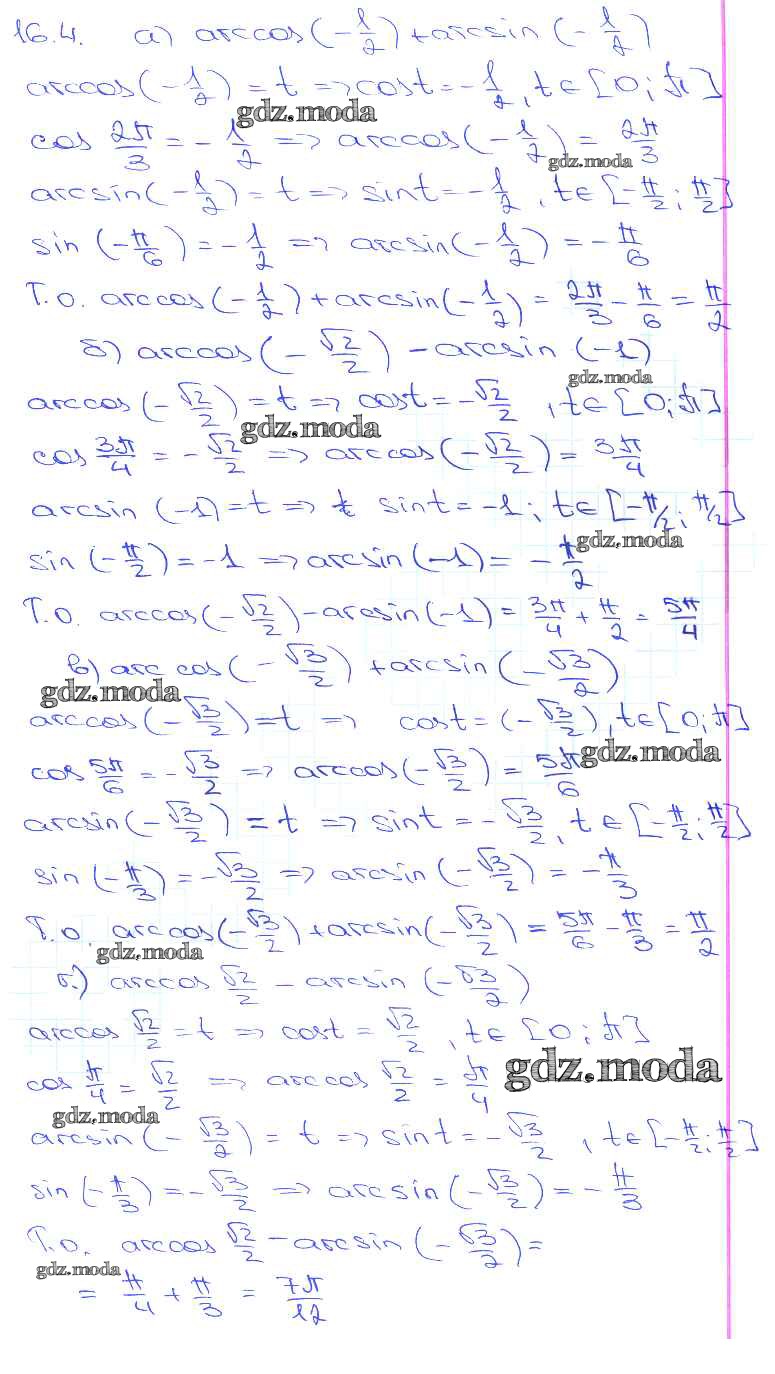 16.4. а) arccos(-1/2)+arcsin(-1/2)
arccos(-1/2)=t => cost=-1/2, t∈[0;π]
gdz.moda
cos 2π/3 = -1/2 => arccos(-1/2)=2π/3
gdz.moda
arcsin(-1/2)=t => sint=-1/2, t∈[-π/2;π/2]
sin(-π/6)=-1/2 => arcsin(-1/2)=-π/6
Т.о. arccos(-1/2)+arcsin(-1/2)=2π/3-π/6=π/2
б) arccos(-√2/2)-arcsin(-1)
gdz.moda
arccos(-√2/2)=t => cost=-√2/2, t∈[0;π]
gdz.moda
cos 3π/4 = -√2/2 => arccos(-√2/2)=3π/4
arcsin(-1)=t => t sint=-1; t∈[-π/2;π/2]
gdz.moda
sin(-π/2)=-1 => arcsin(-1)=-π/2
Т.о. arccos(-√2/2)-arcsin(-1)=3π/4+π/2=5π/4
в) arccos(-√3/2)+arcsin(-√3/2)
gdz.moda
arccos(-√3/2)=t => cost=(-√3/2), t∈[0;π]
gdz.moda
cos 5π/6 = -√3/2 => arccos(-√3/2)=5π/6
arcsin(-√3/2)=t => sint=-√3/2, t∈[-π/2;π/2]
sin(-π/3)=-√3/2 => arcsin(-√3/2)=-π/3
Т.о. arccos(-√3/2)+arcsin(-√3/2)=5π/6-π/3=π/2
gdz.moda
г) arccos √2/2 - arcsin(-√3/2)
arccos √2/2=t => cost=√2/2, t∈[0;π]
gdz.moda
cos π/4=√2/2 => arccos √2/2=π/4
gdz.moda
arcsin(-√3/2)=t => sint=-√3/2, t∈[-π/2;π/2]
sin(-π/3)=-√3/2 => arcsin(-√3/2)=-π/3
Т.о. arccos √2/2-arcsin(-√3/2)=
gdz.moda
=π/4+π/3=7π/12